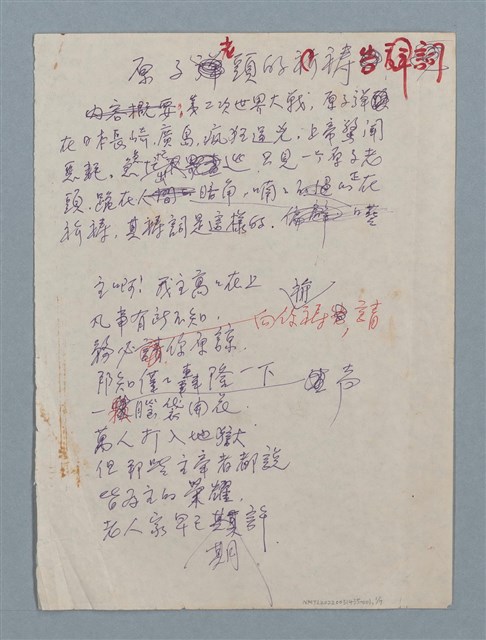 原子老頭的祈禱告辭詞
內容概要:第二次世界大戰,原子彈頭
在日本長崎,廣島,瘋狂過完,上帝驚聞
惡耗,只見一个原子老
頭,跪在人間一暗角,喃喃的正在
祈禱,其禱詞是這樣的,
主啊!我主高高在上
凡事有所不知
向你祈禱,請
務必請你原諒
那知僅僅轟隆一下
一顆腦袋開花
萬人打入地獄
但那些主宰者都說
皆為主的榮耀,
老人家早已期許